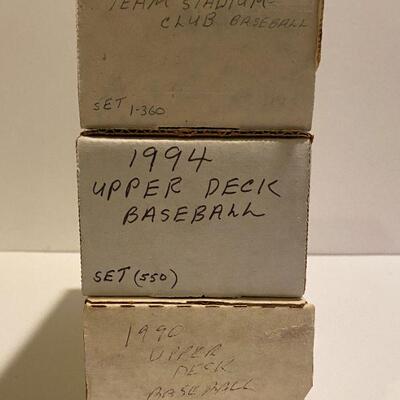 TEAM STADIUM-
CLUB BASEBALL
SET 1-360
1994
UPPER DECK
BASEBALL
SET (550)
1990
UPPER
DECK
BASEBALL